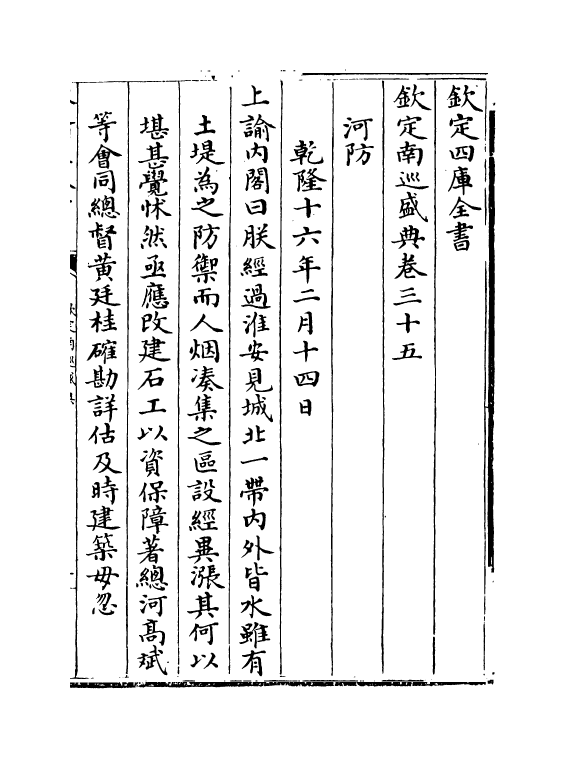 欽定四庫全書
欽定南巡盛典卷三十五
河防
乾隆十六年二月十四日
上諭内閣曰朕經過淮安見城北一帶内外皆水雖有
土堤為之防禦而人烟湊集之區設經異漲其何以
堪甚覺怵然亟應改建石工以資保障著總河髙斌
等會同總督黄廷桂確勘詳估及時建築毋忽
欽定南巡盛典